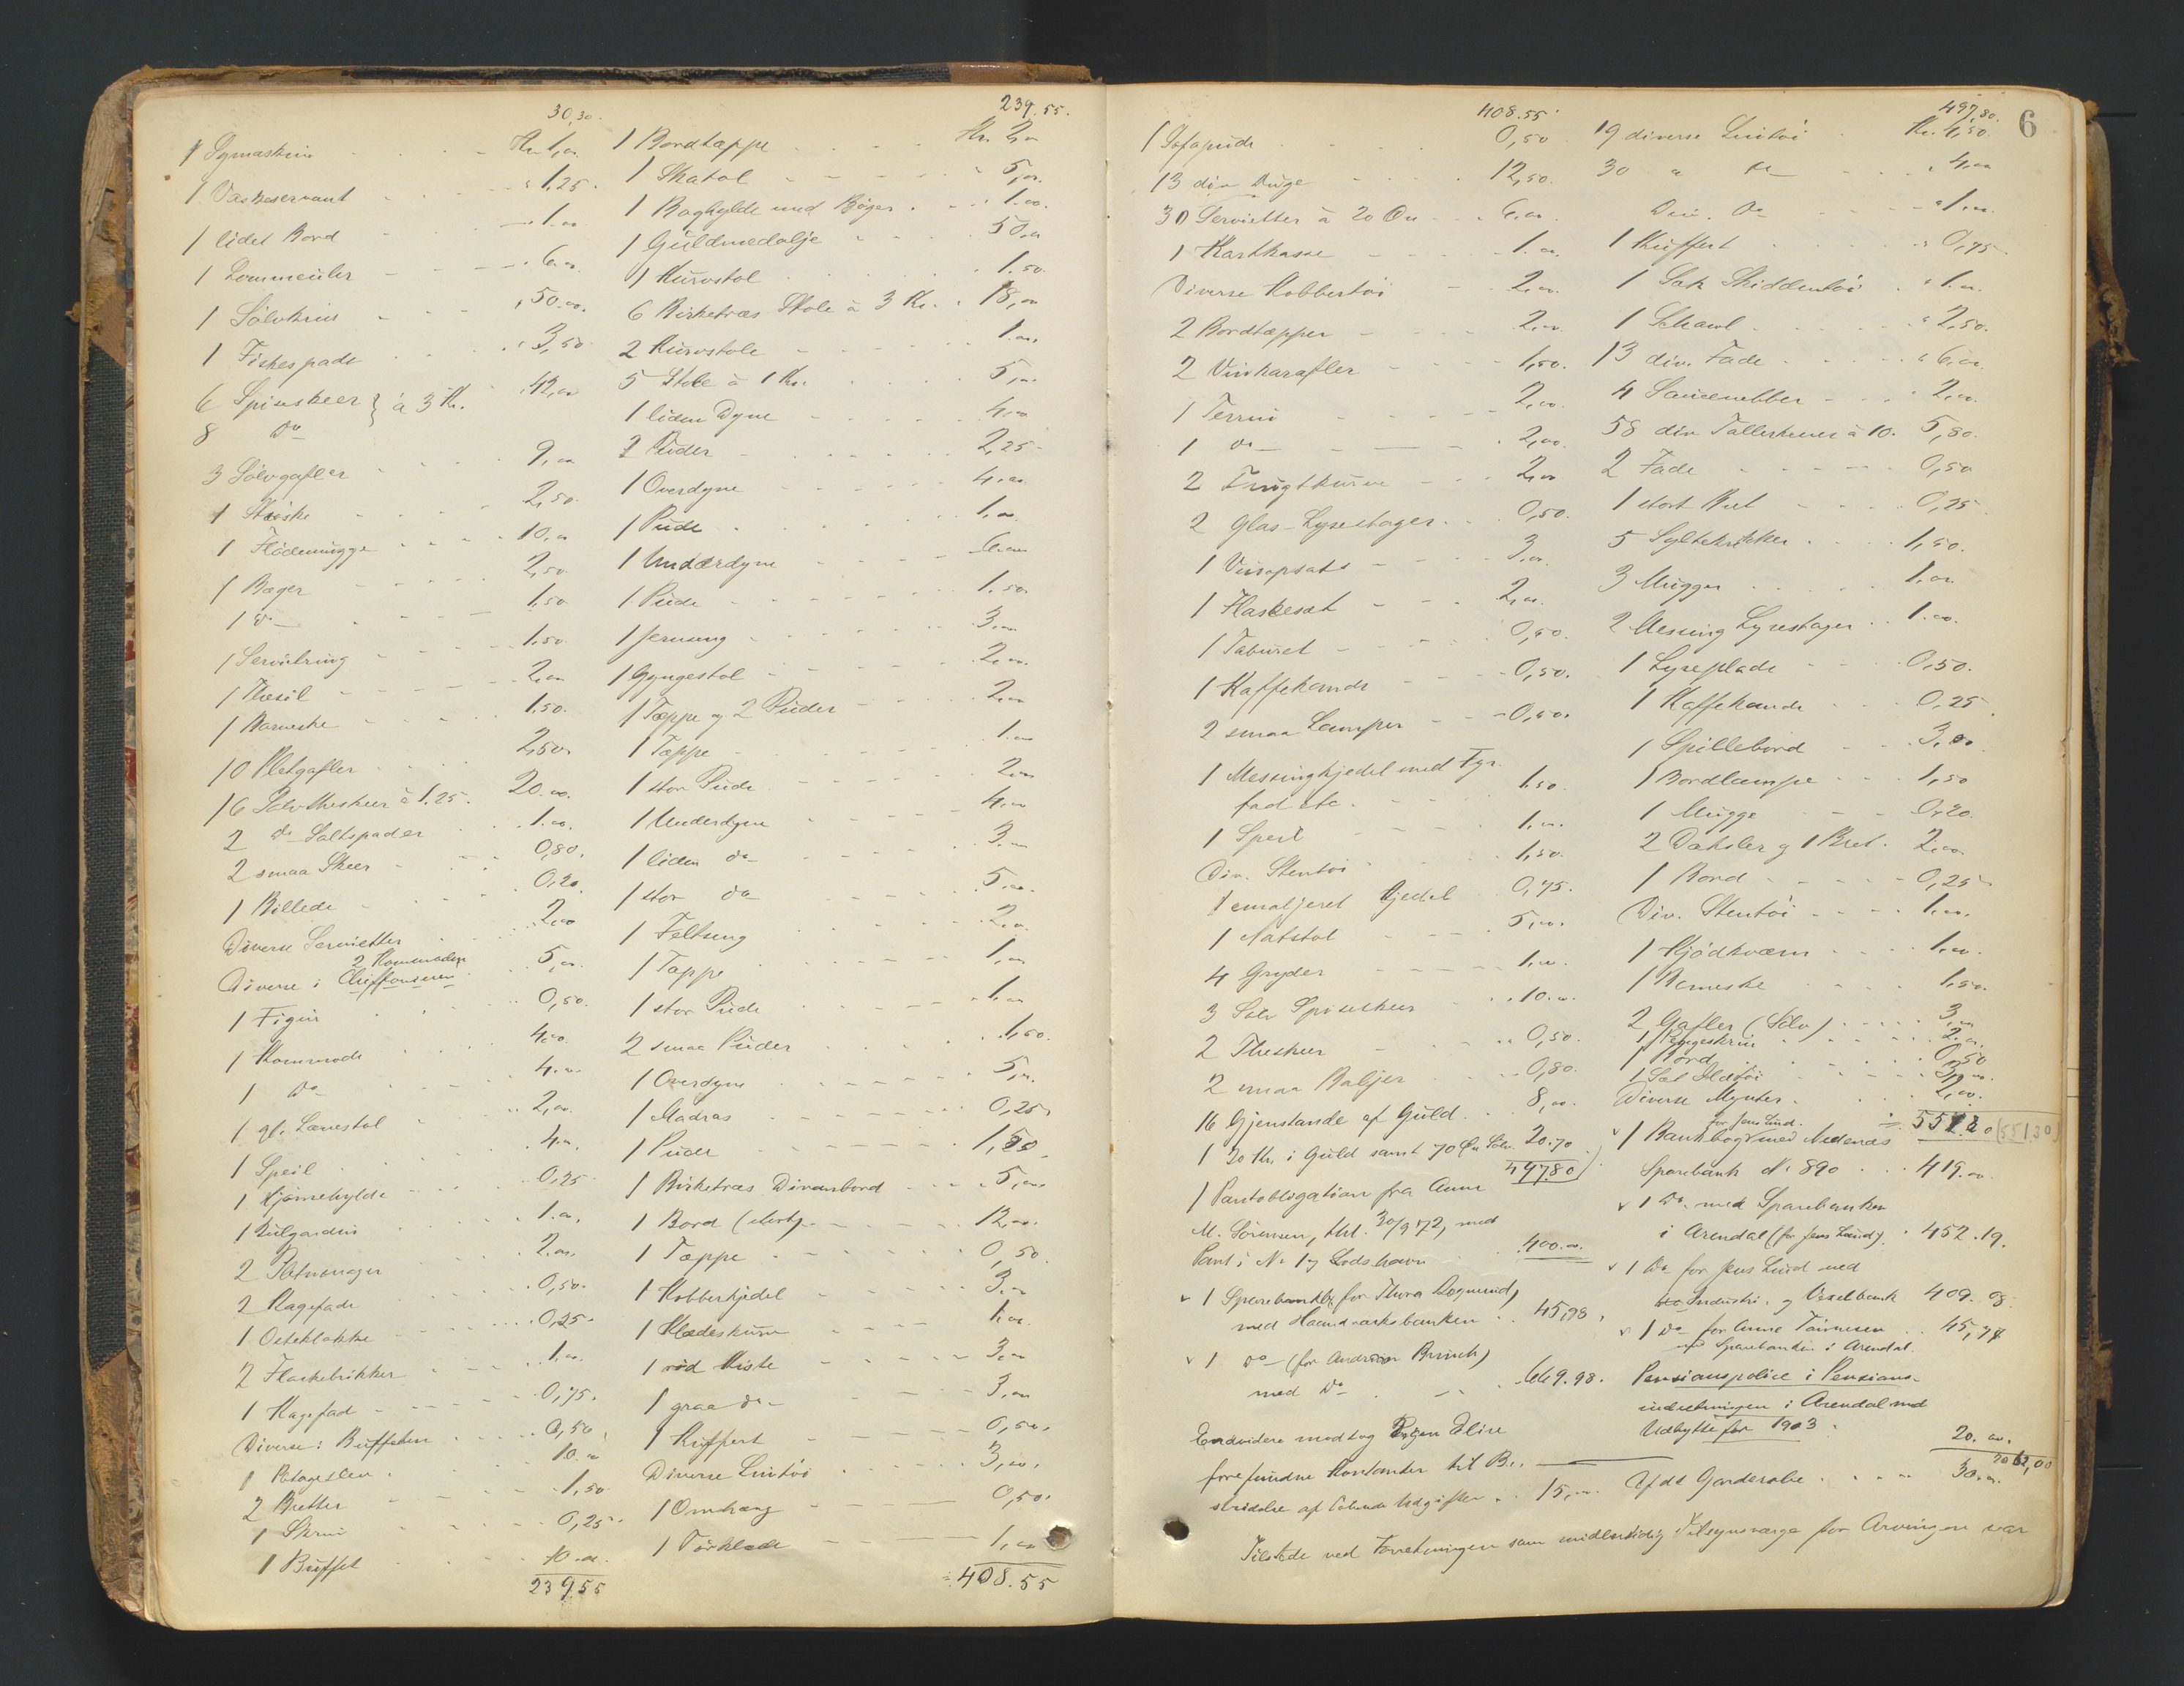 30,30.
1 Symaskin Kr. 1,00
1 Vaskeservant 1,25.
1 lidet Bord 1.00
1 Lommeuhr 6.00
1 Sølvkrus 50.00.
1 Fiskespade 3,50
6 Spiseskeer } à 3 Kr. 42,00
8 Do
3 Sølvgafler 9,00
1 Theske 2,50.
1 Flødemugge 10,00
1 Bæger 2,50.
1 Do 1,50
1 Servietring 1.50.
1 Thesil 2,00
1 Barneske 1.50.
10 Pletgafler 2,50
16 Sølvtheskeer à 1.25. 20.00.
2 Do Saltspader 1.00.
2 smaa Skeer 0,80.
1 Billede 0,20.
Diverse Servietter 2,00
2 Kommoder
Diverse i Chiffonieren 5,00.
1 Figur 0,50.
1 Kommode 4,00.
1 Do 4.00
1 gl. Lænestol 2,00.
1 Speil 4.00.
1 Hjørnehylde 0,25
1 Rulgardin 1.00,
2 2.00.
2 Kagefade 0,50.
1 Osteklokke 0,25.
2 Flaskebrikker 1.00.
1 Kagefad 0,75.
Diverse i Buffeten 0,50,
1 Potageslev 10.00
2 Bretter 1,50
1 Skrin 0,25.
1 Buffet 10.00.
239.55
239.55.
1 Bordtæppe Kr. 2,00
1 Skatol 5,00.
1 Boghylde med Bøger 1.00.
1 Guldmedalje 50.00
1 Kurvstol 1.50.
6 Birketræs Stole à 3 Kr. 18,00
2 Kurvstole 1.00,
5 Stole à 1 Kr. 5,00
1 liden Dyne 4,00
2 Puder 2,25
1 Overdyne 4.00.
1 Pude 1.00.
1 Underdyne 6.00
1 Pude 1.50
1 Jernseng 3.00
1 Gyngestol 2,00.
1 Tæppe og 2 Puder 2,00
1 Tæppe 1.00
1 stor Pude 2,00
1 Underdyne 4.00
1 liden do 3.00
1 stor do 5.00.
1 Feltseng 2,00.
1 Tæppe 1,00
1 stor Pude 1.00
2 smaa Puder 1,50.
1 Overdyne 5,00.
1 Madras 0,25
1 Puder 1,50.
1 Birketræs Divanbord 5,00
1 Bord 12,00.
1 Tæppe 0,50
1 Kobberkjedel 3.00
1 Klædeskurv 1.00.
1 rød Kiste 3,00
1 graa do 3,00
1 Kuffert 0,50,
Diverse Lintøi 3,00.
1 Omhæng 0,50.
1 Tørklæde 1,00
408.55
408.55
1 Sofapude 0,50
13 div. Duge 12,50.
30 Servietter à 20 Øre 6.00.
1 Kartkasse 1.00.
Diverse Kobbertøi 2,00.
2 Bordtæpper 2,00.
2 Vinkarafler 1,50.
1 Terrin 2,00.
1 do 2,00.
2 Frugtkurve 2,00
2 Glas-Lysestager 0,50.
1 Vinopsats 3,00.
1 Flaskesæt 2,00.
1 Taburet 0,50.
1 Kaffekande 0,50.
2 smaa Lamper 0,50.
1 Messingkjedel med Fyr-
fad etc. 1,50.
1 Speil 1.00.
Div. Stentøi 1,50.
1 emaljeret Kjedel 0,75.
1 Natstol 5,00.
4 Gryder 1.00.
3 Sølv Spiseskeer 10.00.
2 Theskeer 0,50.
2 smaa Baljer 0,80.
16 Gjenstande af Guld 8,00.
1 20 Kr. i Guld samt 70 Øre Sølv 20.70
497.80
1 Pantobligation fra Anne
M. Sørensen, thl. 30/9 72, med
Pant i No 17 Lodshavn 400.00.
1 Sparebankbg for Thora Dogmund,
med Haandværksbanken 45,98,
1 Do (for Andrea Brinch)
med Do 669.98.
Endvidere modtog Elise
forefundne Kontanter til Be-
stridelse af løbende Udgifter 15,00.
6
497,80.
19 diverse Lintøi Kr. 4,50.
30 " do 4,00
Div. Do 1.00.
1 Kuffert 0,75
1 Sæk Skiddentøi 1.00.
1 Schawl 2,50.
13 div. Fade 6,00.
4 Saucenebber 2,00.
58 div. Tallerkener à 10. 5,80.
2 Fade 0,50
1 stort Bret 0,25
5 Syltekrukker 1,50.
3 Mugger 1.00.
2 Messing Lysestager 1.00.
1 Lyseplade 0.50.
1 Kaffekande 0,25.
1 Spillebord 3,00
1 Bordlampe 1,50
1 Mugge 0,20.
2 Dæksler og 1 Bret 2,00
1 Bord 0,25
Div. Stentøi 1.00.
1 Kjødkværn 1.00.
1 Barneske 1,50.
2 Gafler (Sølv) 3,00
1 Pengeskrin 2,00.
1 Bord 0,50
1 Sæt
Diverse Mynter 2,00.
for Jens Lund. (551.30)
1 Bankbog med Nedenæs
Sparebank No 890 419.00
1 Do. med Sparebanken
i Arendal (for Jens Lund) 452.19.
1 Do for Jens Lund med
Industri- og Vexelbank 409.08.
1 Do for Anne Tønnesen 45,77
Sparebanken i Arendal.
Pensionspolice i Pensions-
indretningen i Arendal med
Udbytte for 1903 20.00.
Afdødes Garderobe 30.00.
Tilstede ved Forretningen som midlertidig Tilsynsværge for Arvingen var